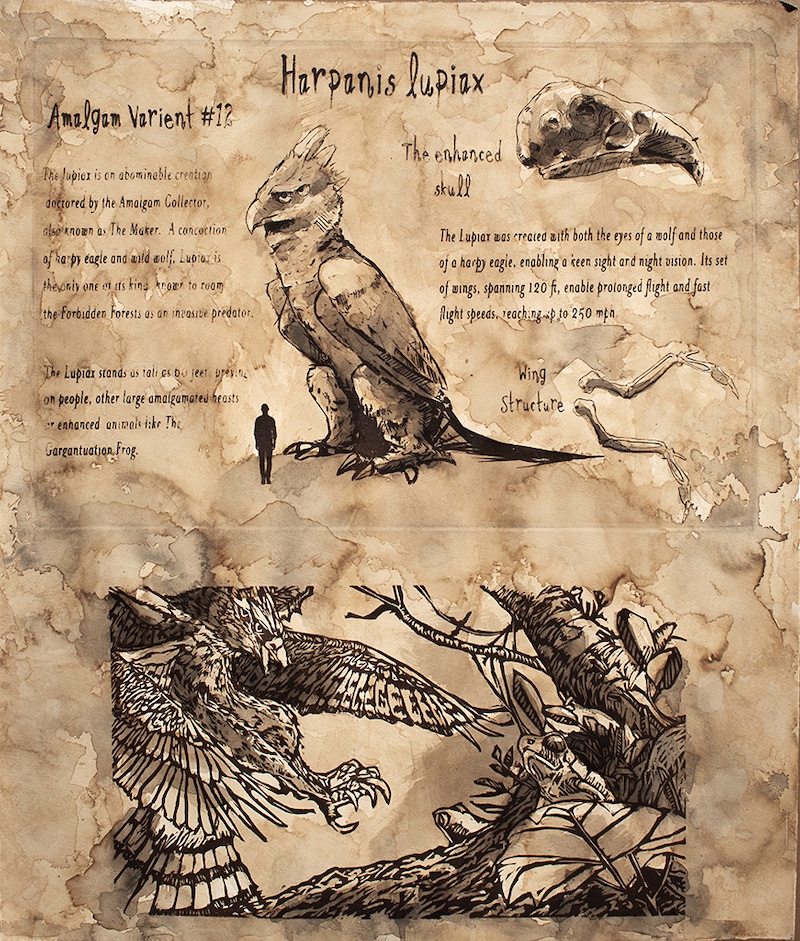 Harpanis lupiax
Amalgam Varient #12
The lupiax is an abominable creation
doctored by the Amalgam Collector,
also known as The Maker. A concoction
of harpy eagle and wild wolf, Lupiax is
the only one of its kind known to roam
the Forbidden Forests as an invasive predator.
The Lupiax stands as tall as 60 feet, preying
on people, other large amalgamated beasts
or enhanced animals like The
Gargantuation Frog.
The enhanced
skull
The Lupiax was created with both the eyes of a wolf and those
of a harpy eagle, enabling a keen sight and night vision. Its set
of wings, spanning 120 ft, enable prolonged flight and fast
flight speeds, reaching up to 250 mph
Wing
Structure